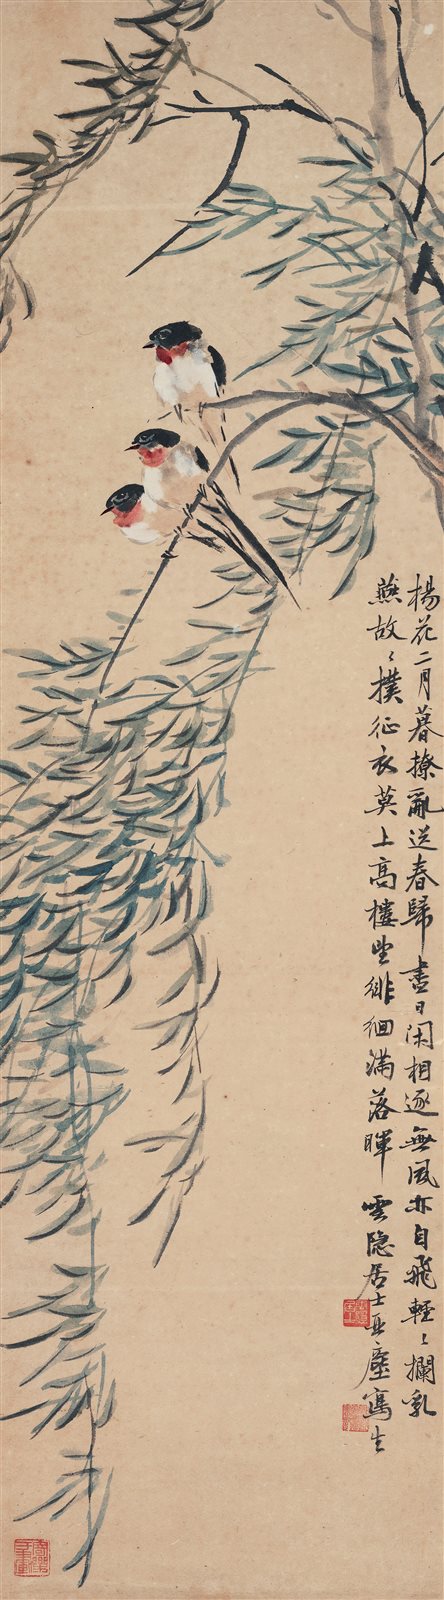 楊花二月暮撩亂送春歸盡日閑相逐無風亦自飛輕〻攔乳
燕故〻撲征衣莫上高樓望徘徊滿落暉 雲隐居士亞塵寫生